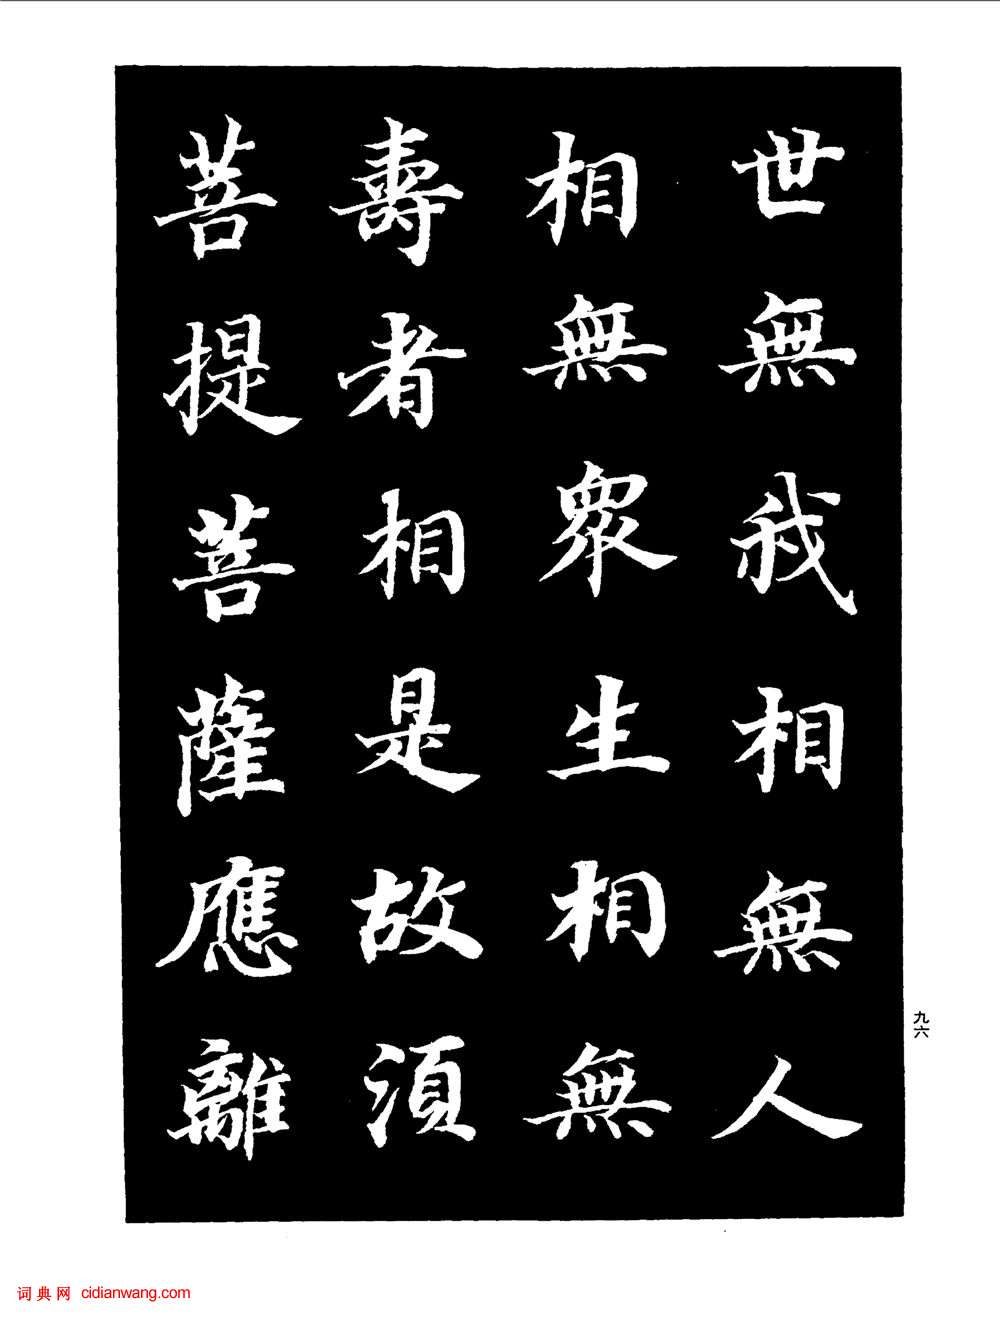 世無我相無人
相無眾生相無
壽者相是故須
菩提菩薩應離
九六
词典网 cidianwang.com